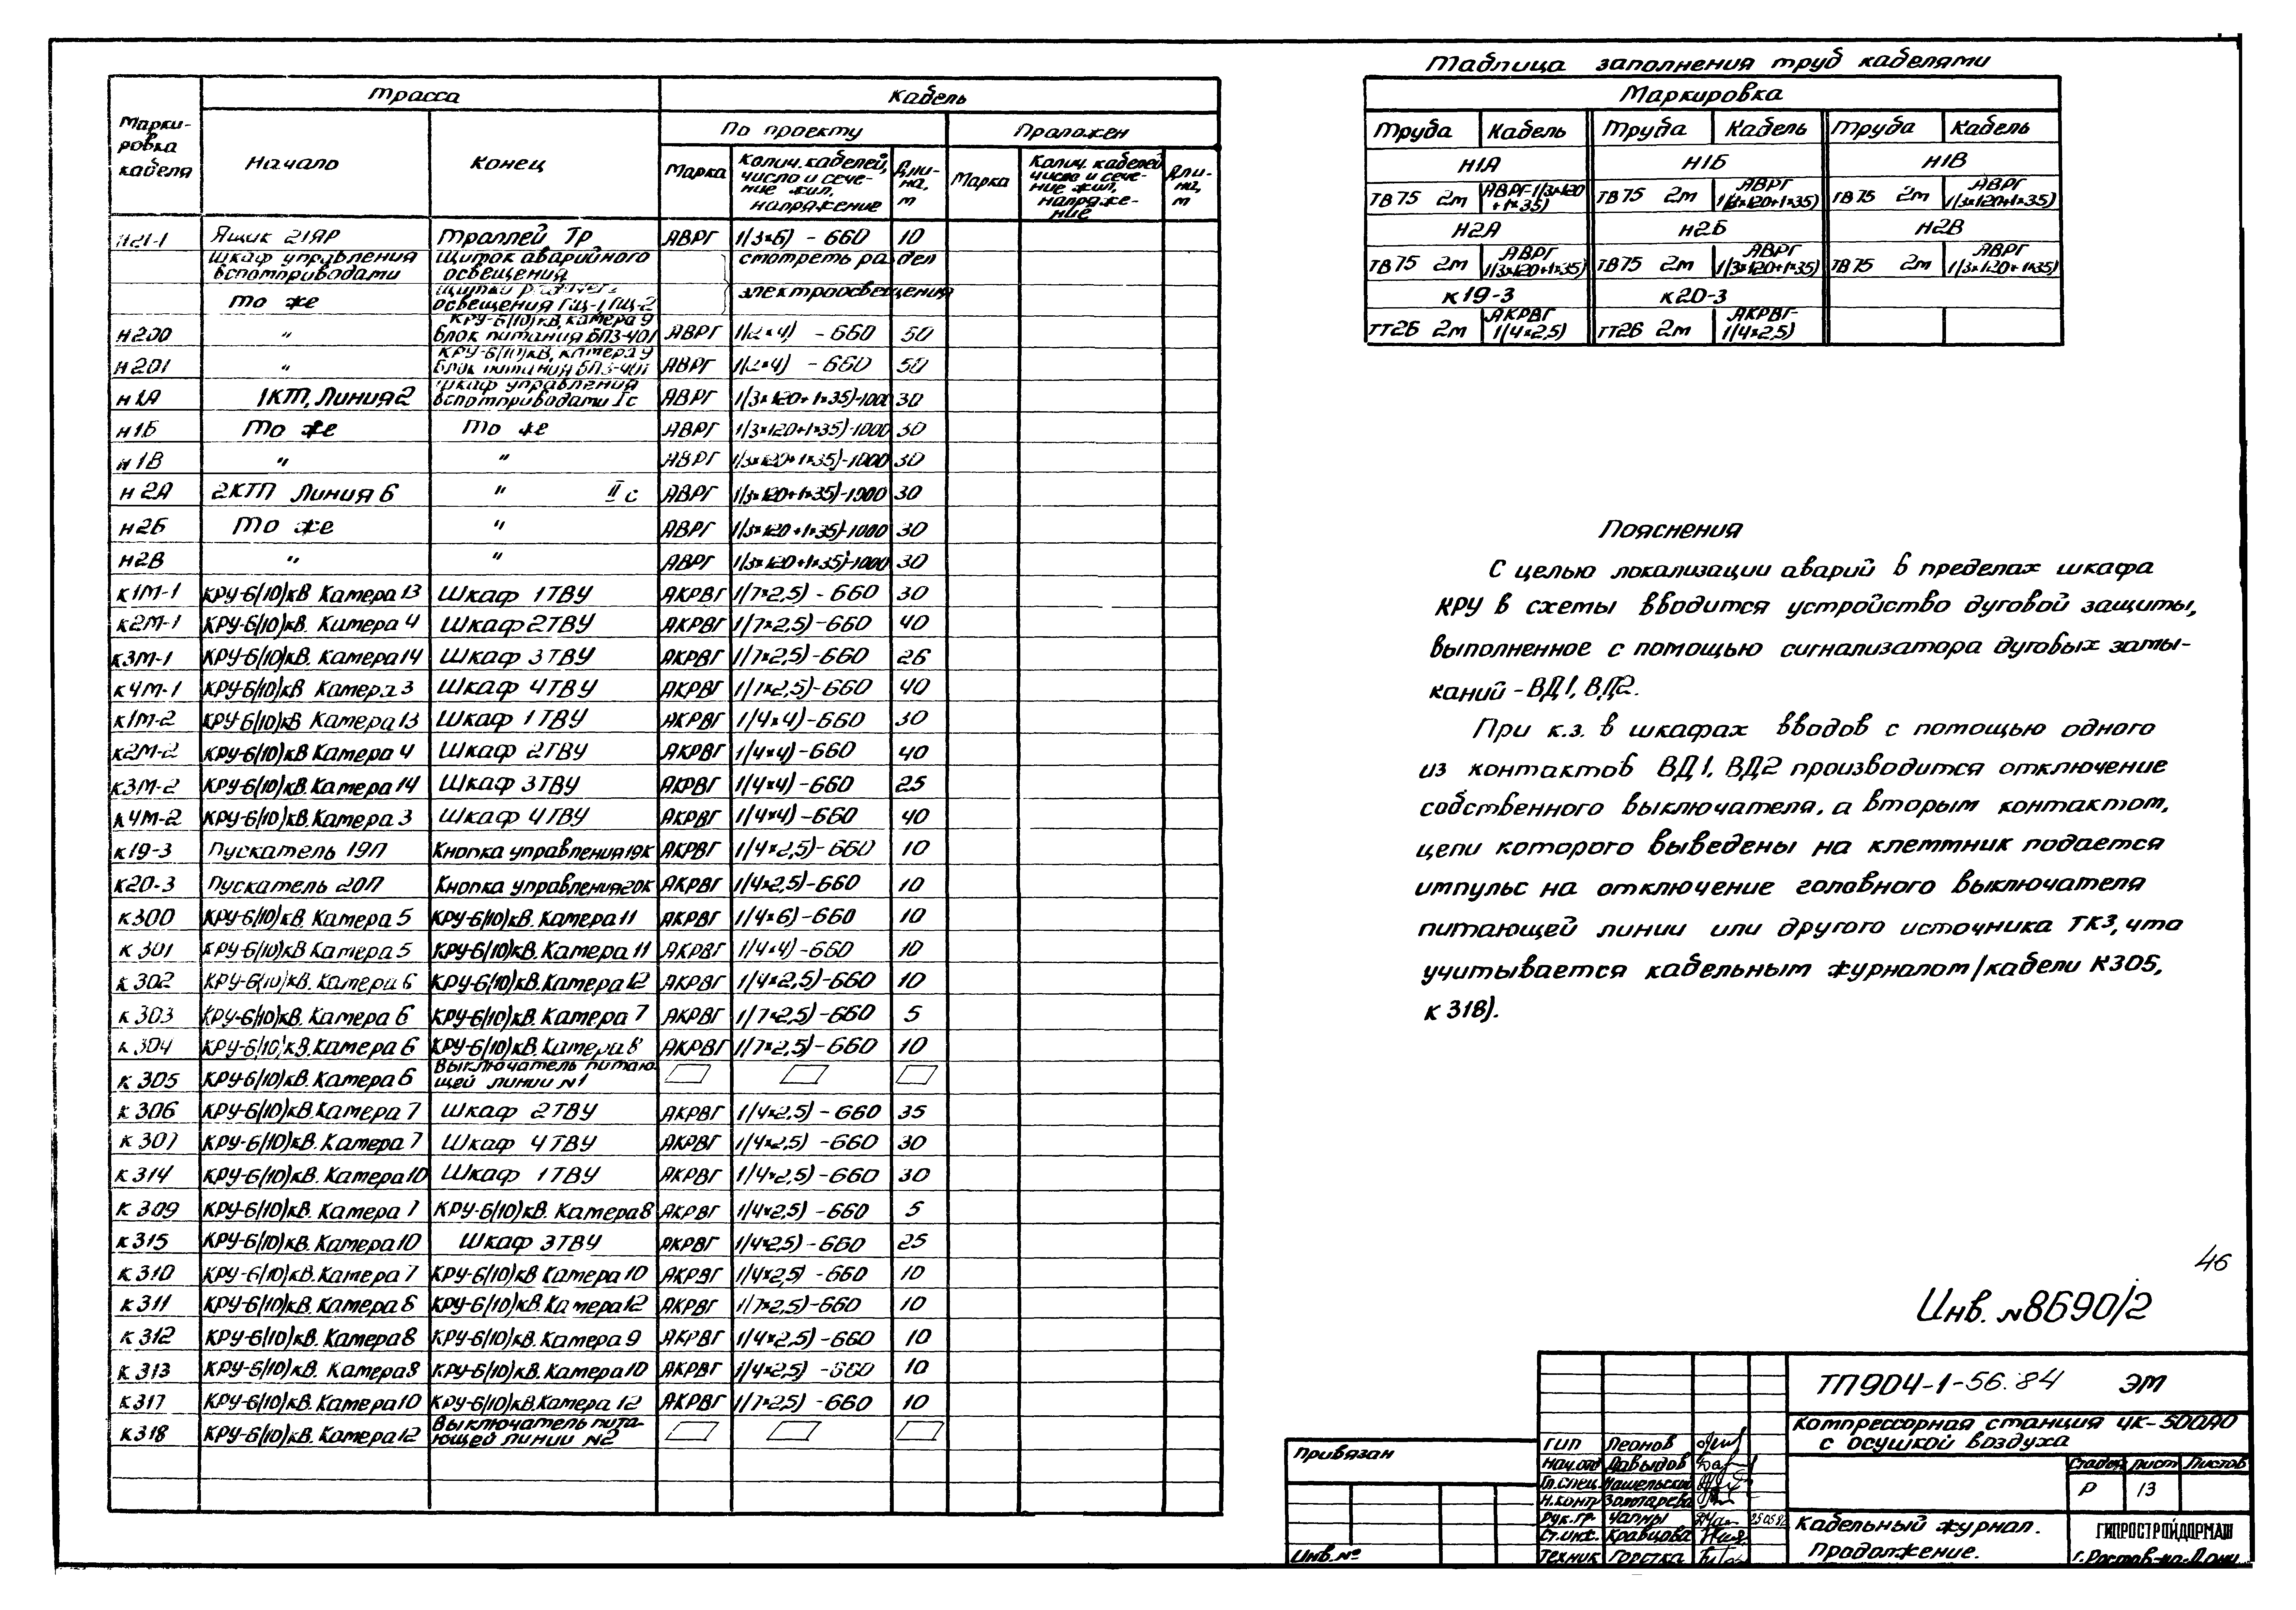 Маркировка кабеля | Трасса | Кабель
Начало | Конец | По проекту | Проложен
Марка | Колич. кабелей, число и сечение жил, напряжение | Длина, м | Марка | Колич. кабелей число и сечение жил, напряжение | Длина, м
Н21-1 | Ящик 21ЯР | Троллей Тр | АВРГ | 1(3×6) - 660 | 10
Шкаф управления вспомприводами | Щиток аварийного освещения | смотреть раздел
То же | освещения ГЩ-1, ГЩ-2 | электроосвещения
Н200 | " | КРУ-6(10)кВ, камера 9 Блок питания БПЗ-401 | АВРГ | 1(2×4) - 660 | 50
Н201 | " | КРУ-6(10)кВ, камера 9 Блок питания БПЗ-401 | АВРГ | 1(2×4) - 660 | 50
Н1А | 1КТП, Линия 2 | Шкаф управления вспомприводами Iс | АВРГ | 1(3×120+1×35)-1000 | 30
Н1Б | То же | То же | АВРГ | 1(3×120+1×35)-1000 | 30
Н1В | " | " | АВРГ | 1(3×120+1×35)-1000 | 30
Н2А | 2КТП Линия 6 | " IIс | АВРГ | 1(3×120+1×35)-1000 | 30
Н2Б | То же | " | АВРГ | 1(3×120+1×35)-1000 | 30
Н2В | " | " | АВРГ | 1(3×120+1×35)-1000 | 30
К1М-1 | КРУ-6(10)кВ Камера 13 | Шкаф 1ТВУ | АКРВГ | 1(7×2,5) - 660 | 30
К2М-1 | КРУ-6(10)кВ. Камера 4 | Шкаф 2ТВУ | АКРВГ | 1(7×2,5)-660 | 40
К3М-1 | КРУ-6(10)кВ. Камера 14 | Шкаф 3ТВУ | АКРВГ | 1(7×2,5)-660 | 26
К4М-1 | КРУ-6(10)кВ Камера 3 | Шкаф 4ТВУ | АКРВГ | 1(7×2,5)-660 | 40
К1М-2 | КРУ-6(10)кВ Камера 13 | Шкаф 1ТВУ | АКРВГ | 1(4×4)-660 | 30
К2М-2 | КРУ-6(10)кВ Камера 4 | Шкаф 2ТВУ | АКРВГ | 1(4×4)-660 | 40
К3М-2 | КРУ-6(10)кВ. Камера 14 | Шкаф 3ТВУ | АКРВГ | 1(4×4)-660 | 25
К4М-2 | КРУ-6(10)кВ. Камера 3 | Шкаф 4ТВУ | АКРВГ | 1(4×4)-660 | 40
К19-3 | Пускатель 19П | Кнопка управления 19К | АКРВГ | 1(4×2,5)-660 | 10
К20-3 | Пускатель 20П | Кнопка управления 20К | АКРВГ | 1(4×2,5)-660 | 10
К300 | КРУ-6(10)кВ. Камера 5 | КРУ-6(10)кВ. Камера 11 | АКРВГ | 1(4×6)-660 | 10
К301 | КРУ-6(10)кВ Камера 5 | КРУ-6(10)кВ. Камера 11 | АКРВГ | 1(4×4)-660 | 10
К302 | КРУ-6(10)кВ. Камера 6 | КРУ-6(10)кВ. Камера 12 | АКРВГ | 1(4×2,5)-660 | 10
К303 | КРУ-6(10)кВ. Камера 6 | КРУ-6(10)кВ. Камера 7 | АКРВГ | 1(7×2,5)-660 | 5
К304 | КРУ-6(10)кВ. Камера 6 | КРУ-6(10)кВ. Камера 8 | АКРВГ | 1(7×2,5)-660 | 10
К305 | КРУ-6(10)кВ. Камера 6 | Выключатель питающей линии №1
К306 | КРУ-6(10)кВ. Камера 7 | Шкаф 2ТВУ | АКРВГ | 1(4×2,5) - 660 | 35
К307 | КРУ-6(10)кВ. Камера 7 | Шкаф 4ТВУ | АКРВГ | 1(4×2,5) - 660 | 30
К314 | КРУ-6(10)кВ. Камера 10 | Шкаф 1ТВУ | АКРВГ | 1(4×2,5) - 660 | 30
К309 | КРУ-6(10)кВ. Камера 7 | КРУ-6(10)кВ. Камера 8 | АКРВГ | 1(4×2,5) - 660 | 5
К315 | КРУ-6(10)кВ. Камера 10 | Шкаф 3ТВУ | АКРВГ | 1(4×2,5) - 660 | 25
К310 | КРУ-6(10)кВ. Камера 7 | КРУ-6(10)кВ Камера 10 | АКРВГ | 1(4×2,5) - 660 | 10
К311 | КРУ-6(10)кВ. Камера 8 | КРУ-6(10)кВ. Камера 12 | АКРВГ | 1(7×2,5)-660 | 10
К312 | КРУ-6(10)кВ. Камера 8 | КРУ-6(10)кВ. Камера 9 | АКРВГ | 1(4×2,5)-660 | 10
К313 | КРУ-6(10)кВ. Камера 8 | КРУ-6(10)кВ. Камера 10 | АКРВГ | 1(4×2,5) -660 | 10
К317 | КРУ-6(10)кВ. Камера 10 | КРУ-6(10)кВ. Камера 12 | АКРВГ | 1(7×2,5) -660 | 10
К318 | КРУ-6(10)кВ. Камера 12 | Выключатель питающей линии №2
Таблица заполнения труб кабелями
Маркировка
Труба | Кабель | Труба | Кабель | Труба | Кабель
Н1А | Н1Б | Н1В
ТВ75 2м | АВРГ-1(3×120+1×35) | ТВ75 2м | АВРГ 1(3×120+1×35) | ТВ75 2м | АВРГ 1(3×120+1×35)
Н2А | Н2Б | Н2В
ТВ75 2м | АВРГ 1(3×120+1×35) | ТВ75 2м | АВРГ 1(3×120+1×35) | ТВ75 2м | АВРГ 1(3×120+1×35)
К19-3 | К20-3
ТТ26 2м | АКРВГ 1(4×2,5) | ТТ26 2м | АКРВГ- 1(4×2,5)
Пояснения
С целью локализации аварий в пределах шкафа
КРУ в схемы вводится устройство дуговой защиты,
выполненное с помощью сигнализатора дуговых замы-
каний - ВД1, ВД2.
При к.з. в шкафах вводов с помощью одного
из контактов ВД1, ВД2 производится отключение
собственного выключателя, а вторым контактом,
цепи которого выведены на клеммник подается
импульс на отключение головного выключателя
питающей линии или другого источника ТКЗ, что
учитывается кабельным журналом (кабели К305,
К318).
46
Инв. №8690/2
ТП904-1-56.84 ЭМ
Компрессорная станция ЧК-500А0
с осушкой воздуха
Стадия | Лист | Листов
Р | 13
Кабельный журнал.
Продолжение.
ГИПРОСТРОЙДОРМАШ
г. Ростов-на-Дону
Привязан
Инв. №
ГИП | Леонов
Нач. отд | Давыдов
Гл. спец.
Н. контр | Золотарева
Рук. гр.
Ст. инж. | Кравцова
Техник | Горетка